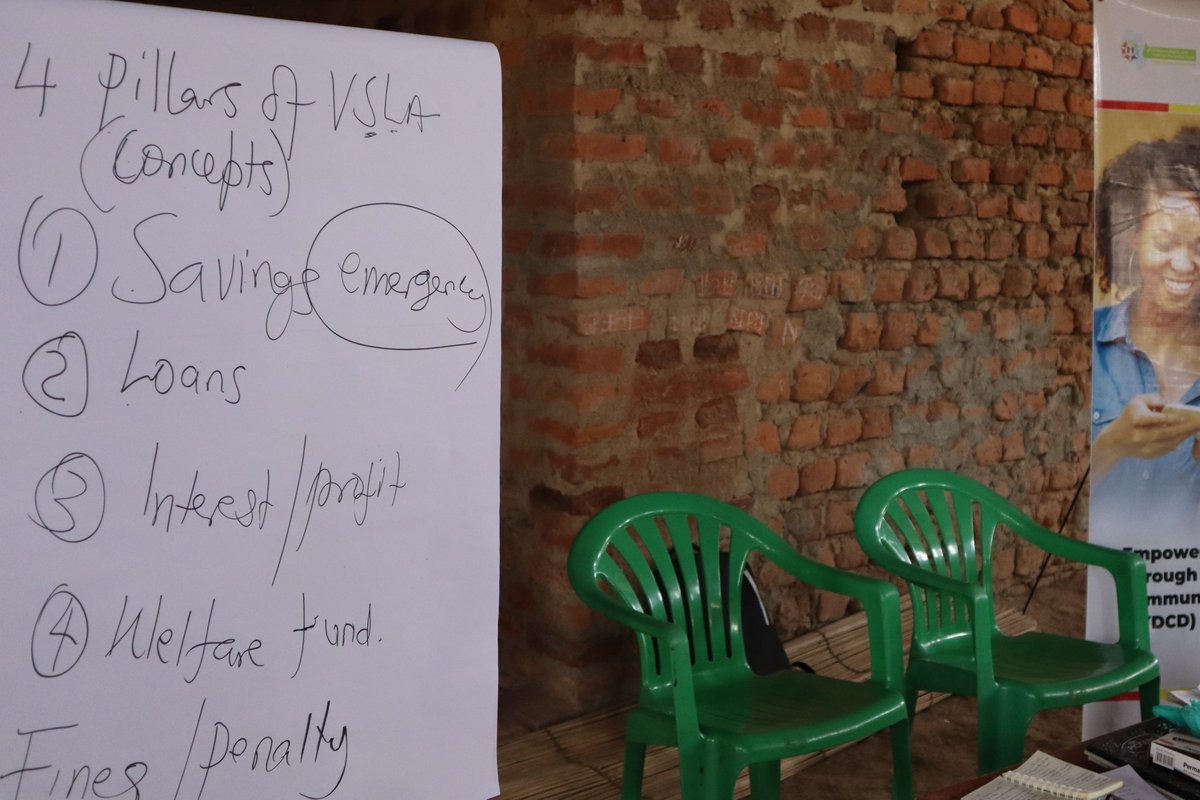 4 Pillars of VSLA
(Concepts)
① Savings emergency
② Loans
③ Interest/profit
④ Welfare fund.
Fines/penalty
Empowe
rough
mmun
(DCD)
Perma